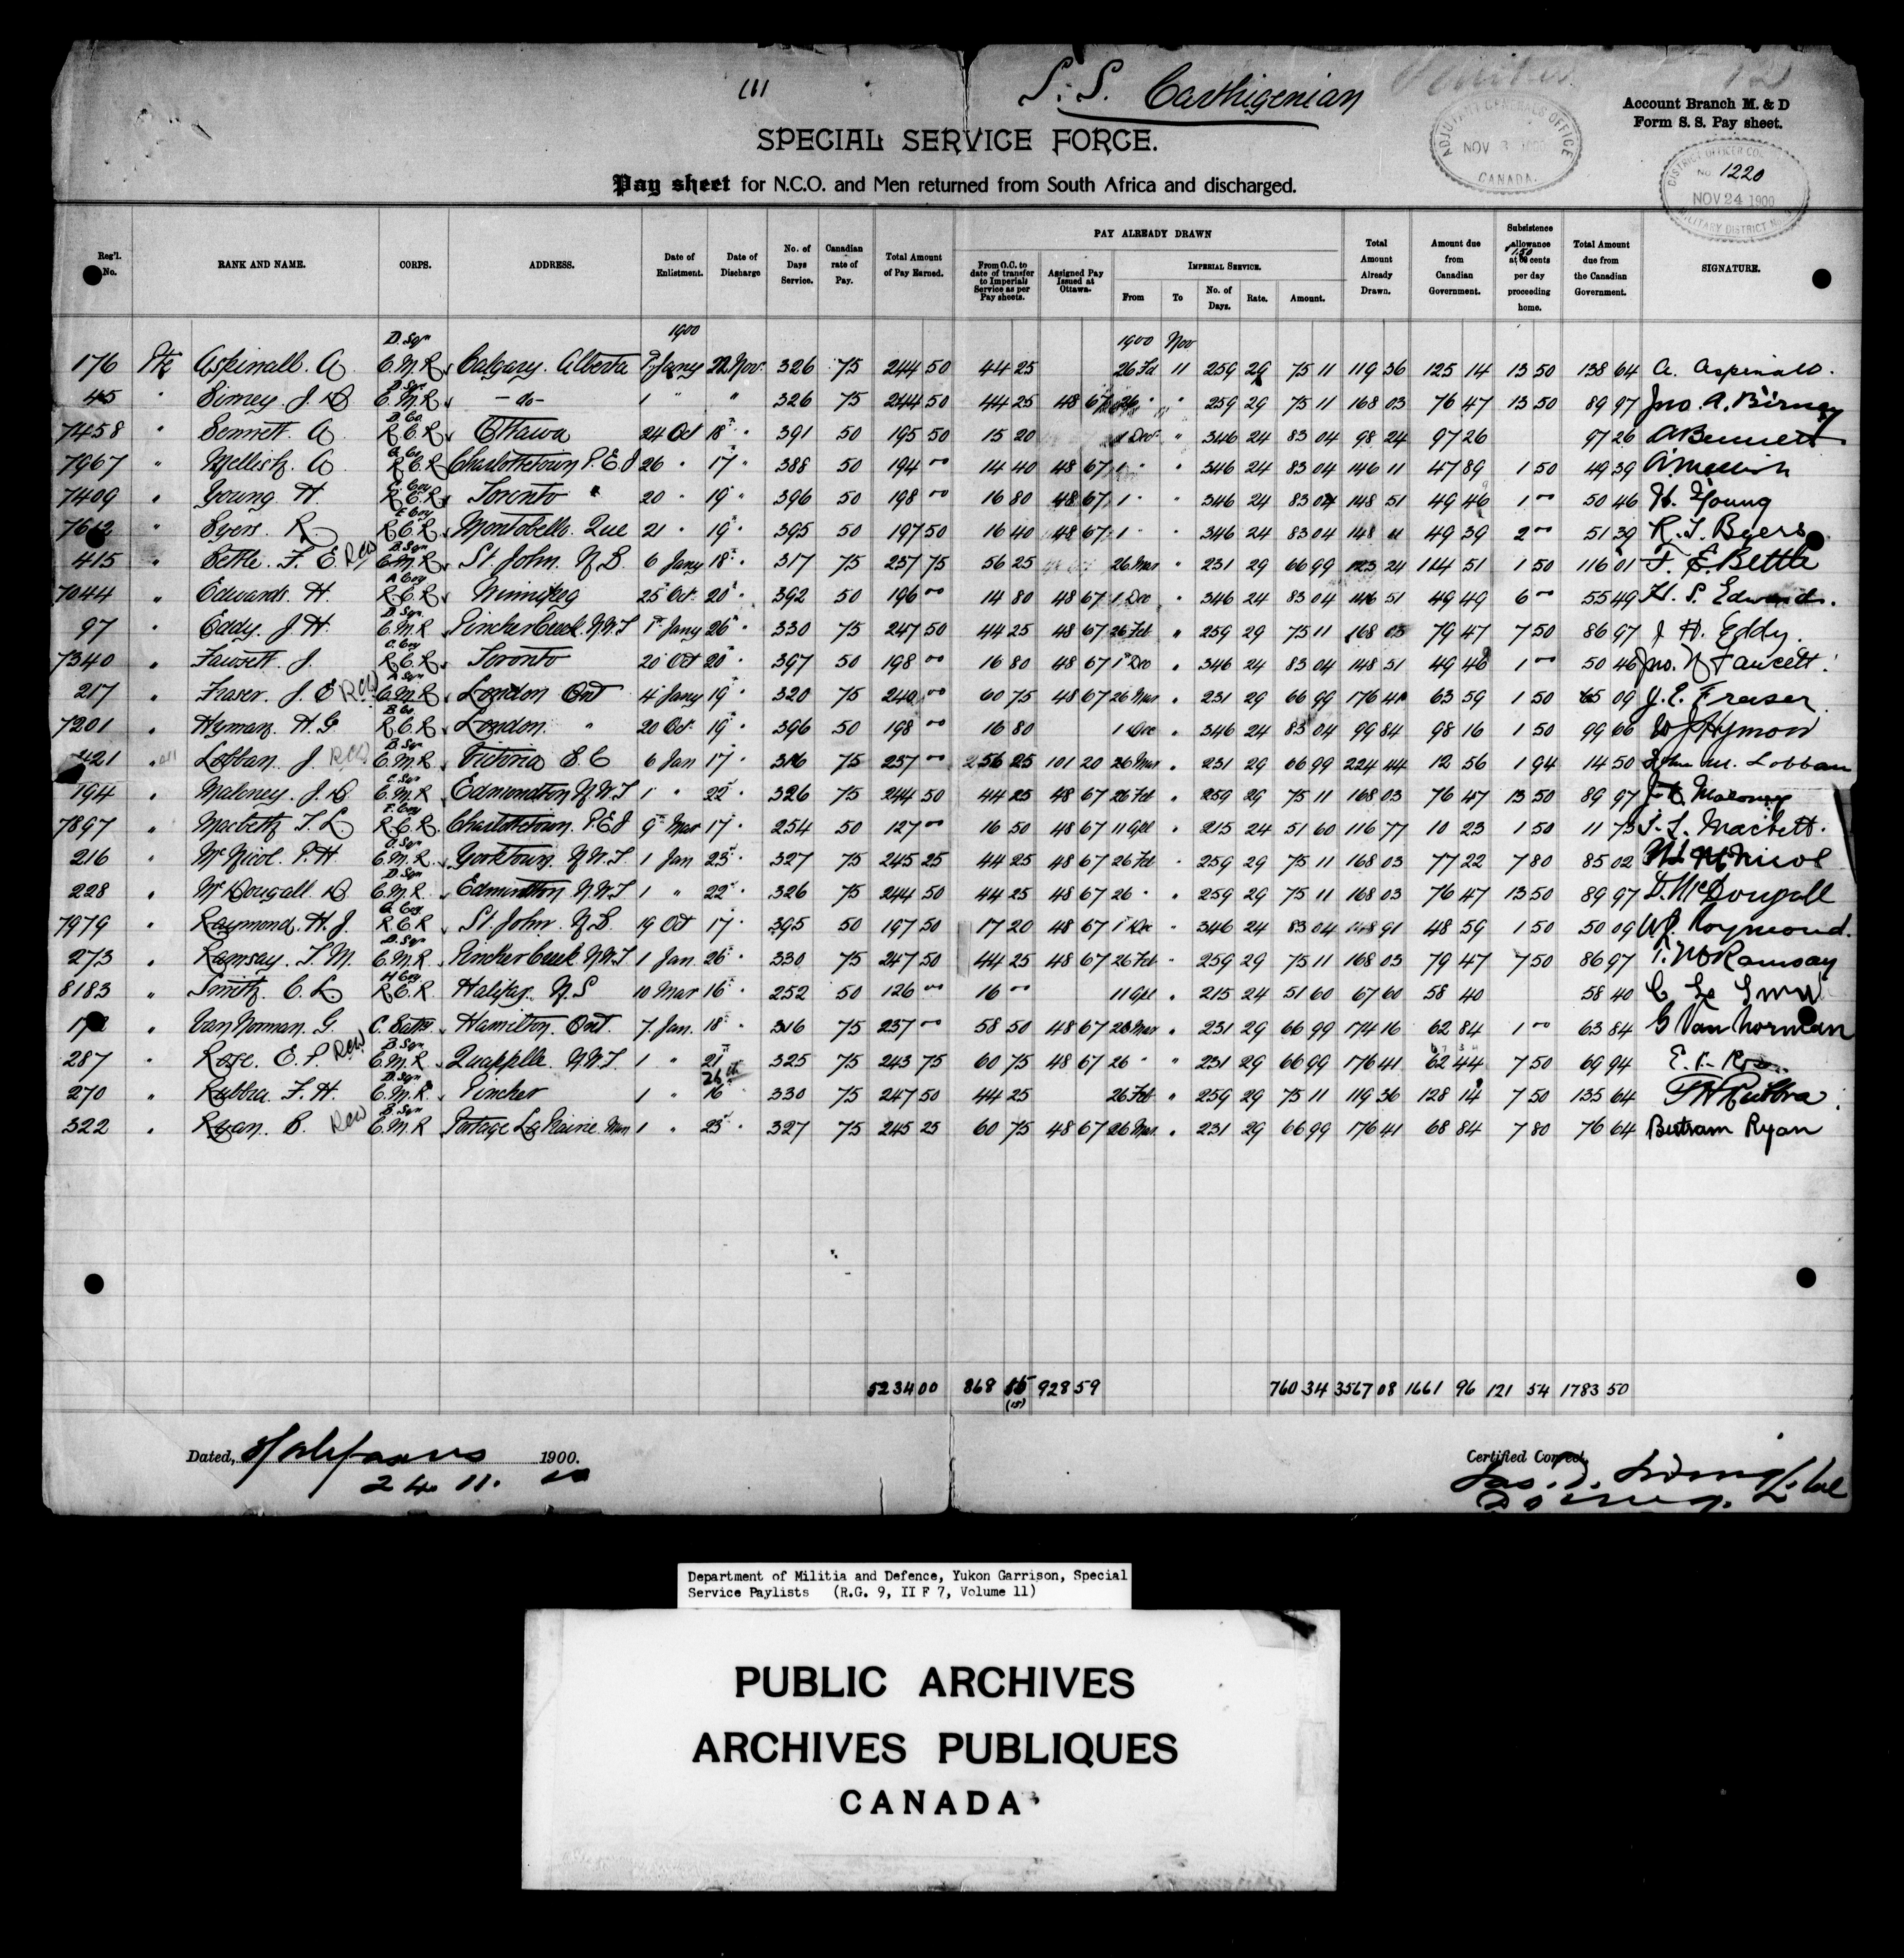 111
S. S. Carthigenian
12
ADJUTANT GENERAL'S OFFICE
NOV 1900
CANADA.
Account Branch M. & D
Form S. S. Pay sheet.
SPECIAL SERVICE FORCE.
DISTRICT OFFICER
No 1220
NOV 24 1900
MILITARY DISTRICT No. 9
Pay sheet for N.C.O. and Men returned from South Africa and discharged.
Reg'l. No. RANK AND NAME. CORPS. ADDRESS. Date of Enlistment. Date of Discharge No. of Days Service. Canadian rate of Pay. Total Amount of Pay Earned. PAY ALREADY DRAWN From O.C. to date of transfer to Imperial Service as per Pay sheets. Assigned Pay Issued at Ottawa. IMPERIAL SERVICE. From To No. of Days. Rate. Amount. Total Amount Already Drawn. Amount due from Canadian Government. Subsistence allowance at 1.50 cents per day proceeding home. Total Amount due from the Canadian Government. SIGNATURE.
1900 1900 Nov
176 Pte Aspinall. A. D. Sqn C.M.R. Calgary. Alberta 1 Jany 22 Nov. 326 75 244 50 44 25 26 Fd 11 259 29 75 11 119 36 125 14 13 50 138 64 A. Aspinall.
45 " Birney. J. A D. Sqn C.M.R. - do - 1 " " 326 75 244 50 44 25 48 67 26 " " 259 29 75 11 168 03 76 47 13 50 89 97 Jno. A. Birney
7458 " Bennett. A. D. Co R.C.R. Ottawa 24 Oct 18 " 391 50 195 50 15 20 1 Dec " 346 24 83 04 98 24 97 26 97 26 A Bennett
7967 " Mellish. A. G. Co R.C.R. Charlottetown P.E.I 26 " 17 " 388 50 194 00 14 40 48 67 1 " " 346 24 83 04 146 11 47 89 1 50 49 39 A Mellish
7409 " Young. H. C. Coy R.C.R. Toronto 20 " 19 " 396 50 198 00 16 80 48 67 1 " " 346 24 83 04 148 51 49 49 1 00 50 46 H. Young
7612 " Byers. R. E Coy R.C.R. Montebello. Que 21 " 19 " 395 50 197 50 16 40 48 67 1 " 346 24 83 04 148 11 49 39 2 00 51 39 R. T. Byers
415 " Bettle. F. E. B. Sqn C.M.R. St. John. N.B. 6 Jany 18 " 317 75 237 75 56 25 26 Mar " 231 29 66 99 123 24 114 51 1 50 116 01 F. E Bettle
7044 " Edwards. H. A Coy R.C.R. Winnipeg 25 Oct. 20 " 392 50 196 00 14 80 48 67 1 Dec " 346 24 83 04 146 51 49 49 6 00 55 49 H. S. Edwards.
97 " Eddy. J. H. D. Sqn C.M.R Pincher Creek. N.W.T 1 Jany 26 " 330 75 247 50 44 25 48 67 26 Feb " 259 29 75 11 168 03 79 47 7 50 86 97 J. H. Eddy.
7340 " Fawcett. J. C. Coy R.C.R. Toronto 20 Oct 20 " 397 50 198 00 16 80 48 67 1 Dec " 346 24 83 04 148 51 49 49 1 00 50 46 Jno. N Fawcett.
217 " Fraser. J. E A Sqn C.M.R. London Ont 4 Jany 19 " 320 75 240 00 60 75 48 67 26 Mar " 231 29 66 99 176 41 63 59 1 50 65 09 J. E. Fraser.
7201 " Hyman. H. G B. Co. R.C.R. London. " 20 Oct. 19 " 396 50 198 00 16 80 1 Dec " 346 24 83 04 99 84 98 16 1 50 99 66 Hymon
421 " Lobban. J B. Sqn C.M.R. Victoria B.C 6 Jan 17 " 316 75 237 00 256 25 101 20 26 Mar " 231 29 66 99 224 44 12 56 1 94 14 50 John M. Lobban
194 " Maloney. J. D C. Sqn C.M.R Edmondton N.W.T 1 " 22 " 326 75 244 50 44 25 48 67 26 Feb " 259 29 75 11 168 03 76 47 13 50 89 97 J D Maloney
7897 " Macbeth. T. L. F. Coy R.C.R. Charlottetown. P.E.I 9 Mar 17 " 254 50 127 00 16 50 48 67 11 Apl " 215 24 51 60 116 77 10 23 1 50 11 73 T. L. Macbett.
216 " McNicol. P. H. D. Sqn C.M.R. Yorktown. N.W.T. 1 Jan 23 " 327 75 245 25 44 25 48 67 26 Feb " 259 29 75 11 168 03 77 22 7 80 85 02 McNicol
228 " McDougall. D D. Sqn C.M.R. Edmondton N.W.T 1 " 22 " 326 75 244 50 44 25 48 67 26 " " 259 29 75 11 168 03 76 47 13 50 89 97 D. McDougall
7979 " Raymond. H. J. G. Coy R.C.R St. John. N.B. 19 Oct 17 " 395 50 197 50 17 20 48 67 1 Dec " 346 24 83 04 148 91 48 59 1 50 50 09 Raymond.
273 " Ramsay. T. M. D. Sqn C.M.R. Pincher Creek N.W.T 1 Jan. 26 " 330 75 247 50 44 25 48 67 26 Feb " 259 29 75 11 168 03 79 47 7 50 86 97 T. M Ramsay
8183 " Smith. C. L. H Coy R.C.R. Halifax. N.S 10 Mar 16 " 252 50 126 00 16 00 11 Apl " 215 24 51 60 67 60 58 40 58 40 C L Smith
" Van Norman. G. C. Batty Hamilton. Ont. 7. Jan. 18 " 316 75 237 00 58 50 48 67 26 Mar " 231 29 66 99 174 16 62 84 1 00 63 84 G Van Norman
287 " Rose. E. P. B. Sqn C.M.R. Quappelle. N.W.T. 1 " 21 325 75 243 75 60 75 48 67 26 " " 231 29 66 99 176 41 62 44 7 50 69 94 E. P. Rose
270 " Rubbra. F. H. D. Sqn C.M.R. Pincher 1 " 26th 16 330 75 247 50 44 25 26 Feb " 259 29 75 11 119 36 128 14 7 50 135 64 F H Rubbra.
322 " Ryan. B. B. Sqn C.M.R Portage La Prairie. Man 1 " 23 " 327 75 245 25 60 75 48 67 26 Mar. " 231 29 66 99 176 41 68 84 7 80 76 64 Bertram Ryan
5234 00 868 15 928 59 760 34 3567 08 1661 96 121 54 1783 50
(15)
Dated, Halifax 1900.
24. 11. 00
Certified Correct.
Department of Militia and Defence, Yukon Garrison, Special
Service Paylists (R.G. 9, II F 7, Volume 11)
PUBLIC ARCHIVES
ARCHIVES PUBLIQUES
CANADA